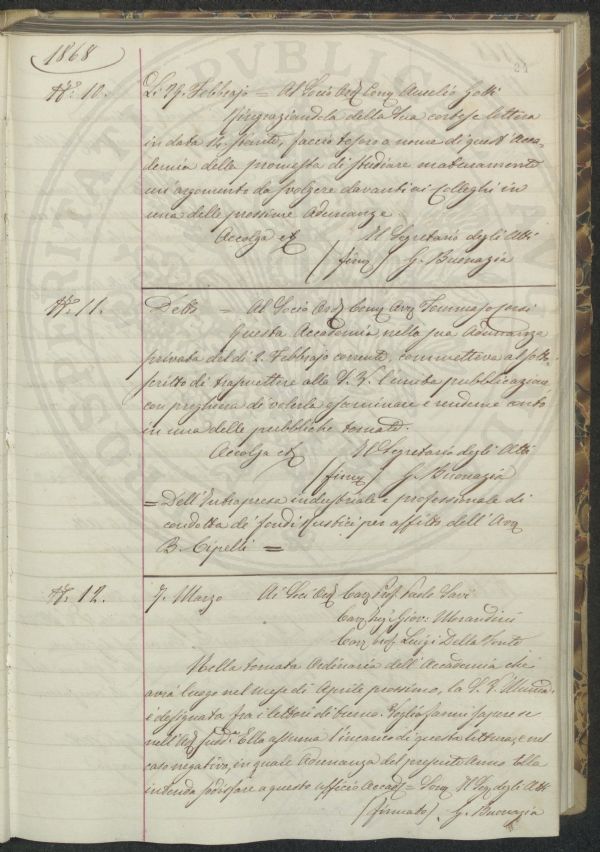 1868
24
N.° 10. Li 29. Febbrajo = Al Socio Ord. Comm. Aurelio Gotti
Ringraziandola della Sua cortese lettera
in data 14. stante, faccio tesoro a nome di quest'Acca-
demia della promessa di studiare maturamente
un'argomento da svolgere davanti ai Colleghi in
una delle prossime Adunanze
Accolga etc Il Segretario degli Atti
(firm) G. Buonazia
N.° 11. Detto = Al Socio Ord. Comm. Avv. Tommaso Corsi
Questa Accademia, nella sua Adunanza
privata del dì 2. Febbrajo corrente, commetteva al sotto
scritto di trasmettere alla S. V. l'unita pubblicazione
con preghiera di volerla esaminare e renderne conto
in una delle pubbliche tornate.
Accolga etc Il Segretario degli Atti
(firm) G. Buonazia
= Dell'Intrapresa industriale e professionale di
condotta de' fondi rustici per affitto dell'Avv
B. Cipelli =
N.° 12. 7. Marzo Ai Soci Ord. Cav. Prof. Paolo Savi
Cav. Ing. Giov: Morandini
Cav. Prof. Luigi Della Fonte
Nella tornata Ordinaria dell'Accademia che
avrà luogo nel mese di Aprile prossimo, la S. V. Illuma.
è designata fra i lettori di turno. Voglia farmi sapere se
nell'Ad. sudd.a Ella assuma l'incarico di questa lettura, e nel
caso negativo, in quale Adunanza del presente Anno Ella
intenda sodisfare a questo ufficio Accad. = Il Seg. degli Atti
(firmato) G. Buonazia